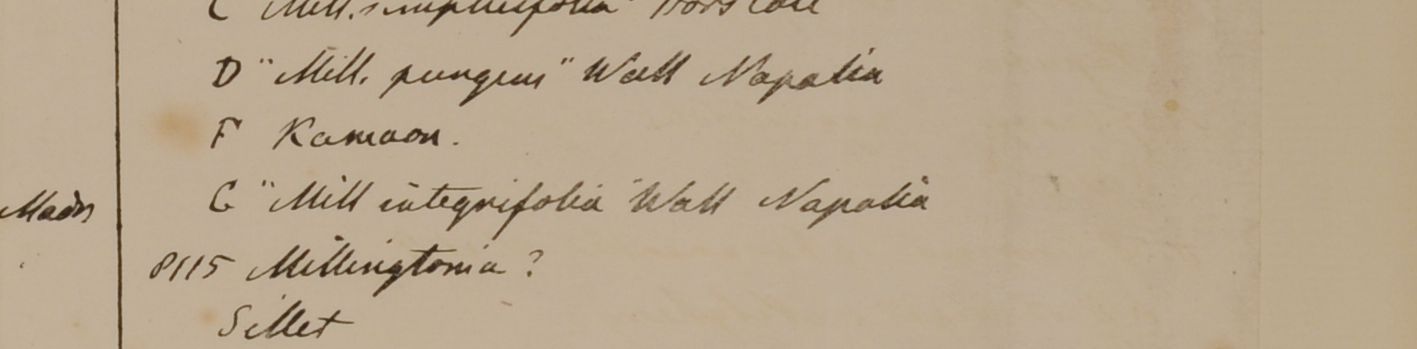 C "Mill. simplicifolia"
D "Mill. pungens" Wall Napalia
F Kamaon.
G "Mill integrifolia" Wall Napalia
8115 Millingtonia?
Sillet